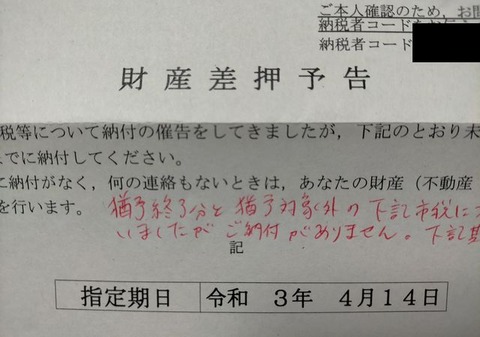 ご本人確認のため，お問
納税者コード
納税者コード
財産差押予告
税等について納付の催告をしてきましたが，下記のとおり未
でに納付してください。
に納付がなく，何の連絡もないときは，あなたの財産（不動産
を行います。
猶予終了分と猶予対象外の下記市税につ
いましたがご納付がありません。下記期
記
指定期日 令和 3年 4月14日